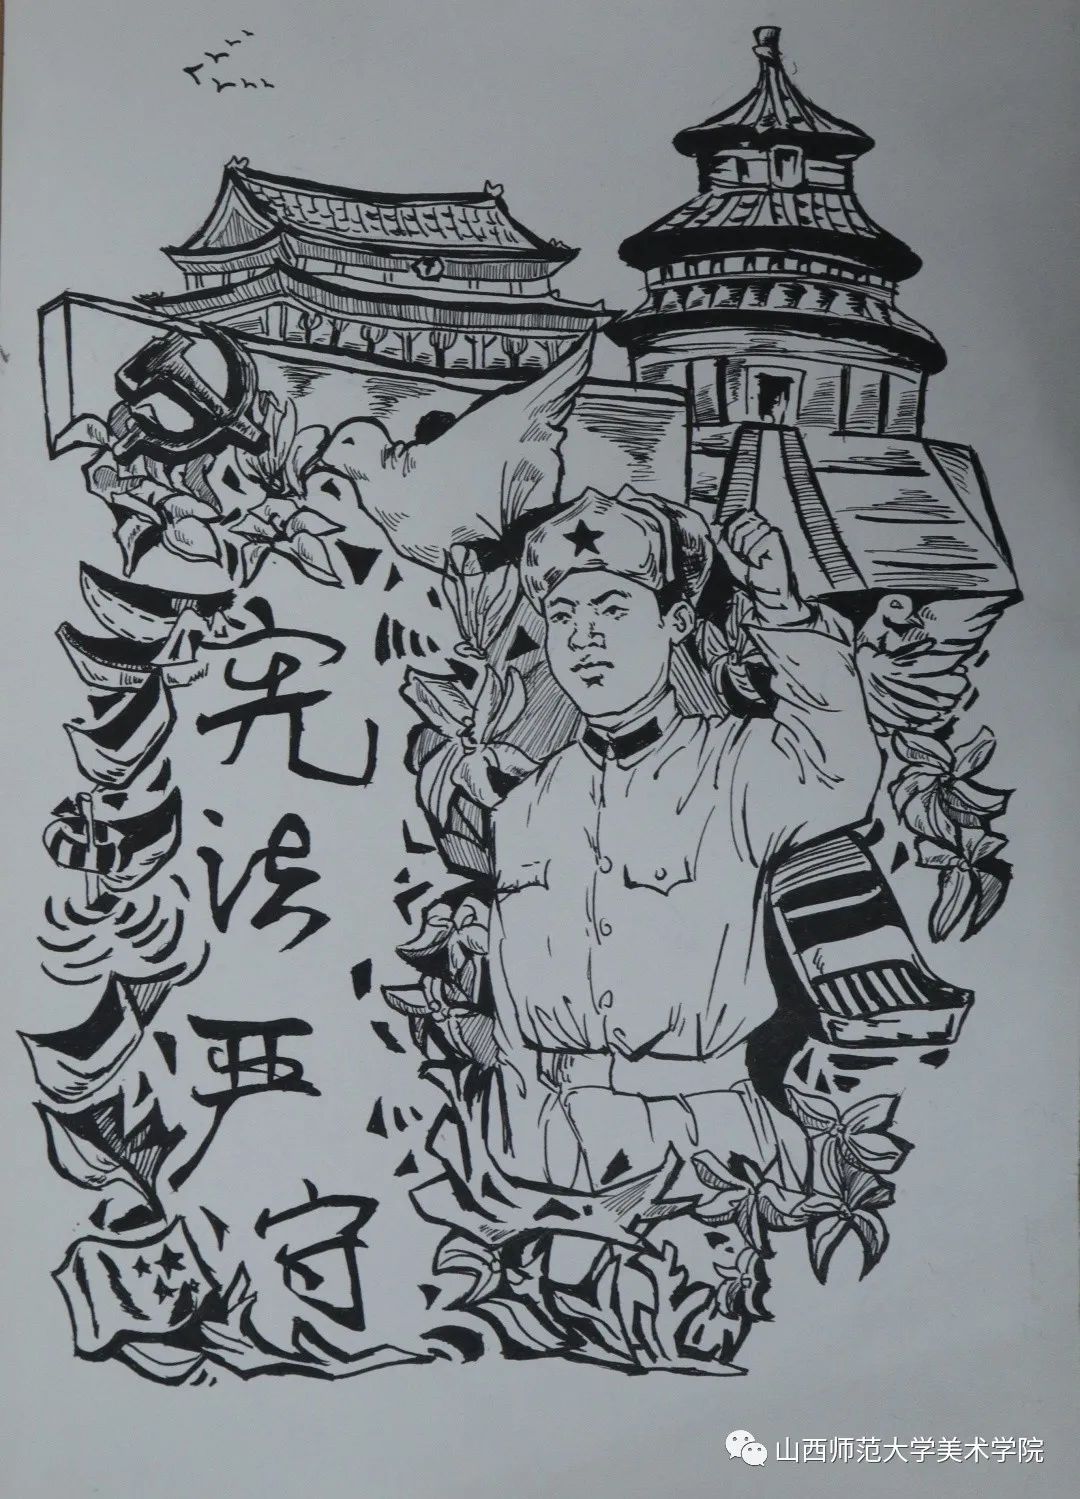 宪法严守
山西师范大学美术学院